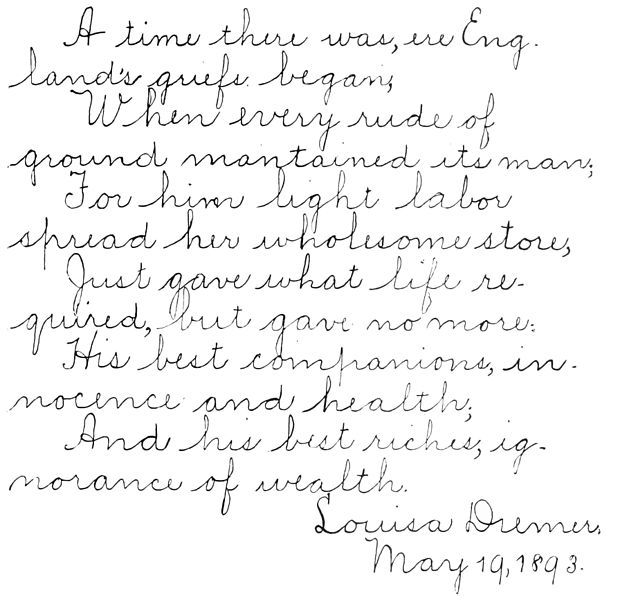 A time there was, ere Eng-
land's griefs began,
When every rude of
ground mantained its man;
For him light labor
spread her wholesome store,
Just gave what life re-
quired, but gave no more:
His best companions, in-
nocence and health;
And his best riches, ig-
norance of wealth.
Louisa Dremer.
May 19, 1893.